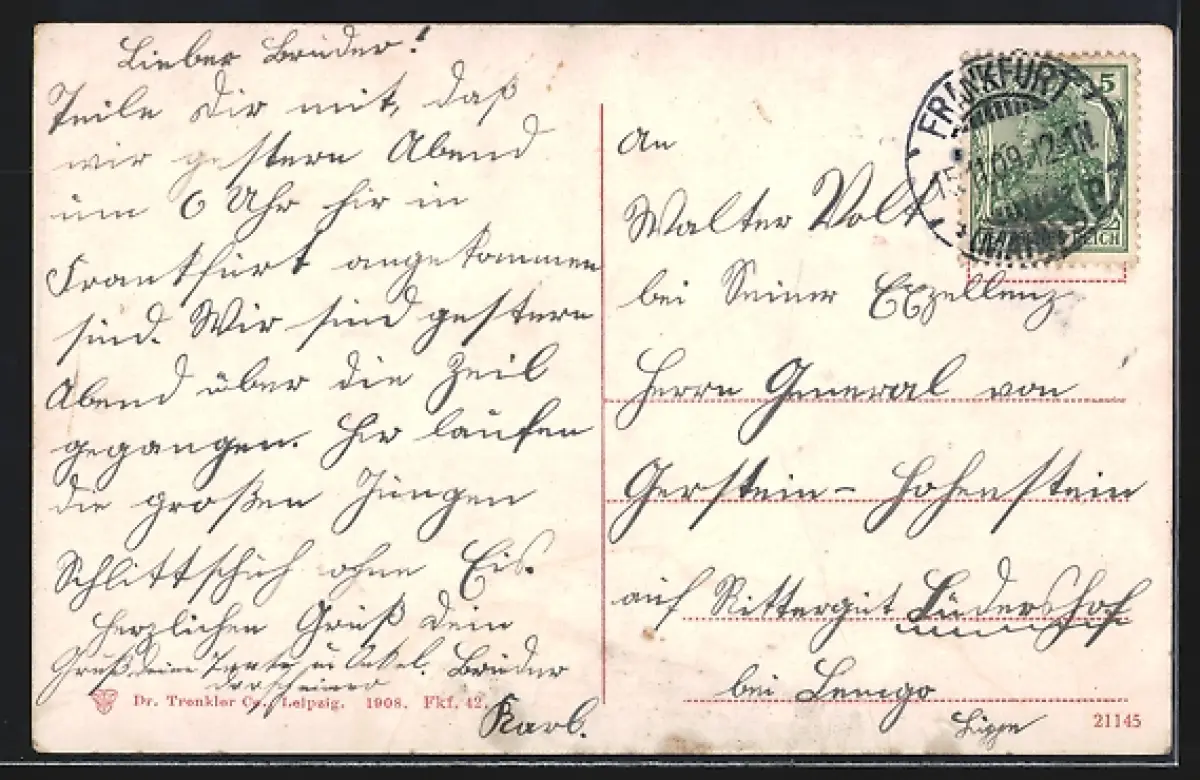 Lieber Bruder!
Teile Dir mit, daß
wir gestern Abend
um 6 Uhr hir in
Frankfurt angekommen
sind. Wir sind gestern
Abend über die Zeil
gegangen. Hir laufen
die großen Jungen
Schlittschuh ohne Eis.
Herzlichen Gruß Dein
Gruß deine Tante u Onkel. Bruder
Karl.
Dr. Trenkler Co., Leipzig. 1908. Fkf. 42.
FRANKFURT
15.11.09.12-1N.
5
REICH
An
Walter Volt
bei Seiner Exzellenz
Herrn General von
Gerstein-Hohenstein
auf Rittergut Lüdershof
bei Lemgo
Lippe
21145